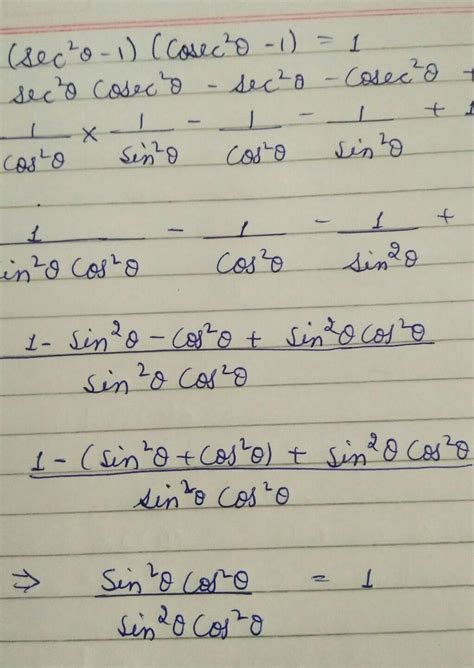 (sec²θ - 1) (cosec²θ - 1) = 1
sec²θ cosec²θ - sec²θ - cosec²θ +
1/cos²θ × 1/sin²θ - 1/cos²θ - 1/sin²θ + 1
1/in²θ cos²θ - 1/cos²θ - 1/sin²θ +
1 - sin²θ - cos²θ + sin²θ cos²θ / sin²θ cos²θ
1 - (sin²θ + cos²θ) + sin²θ cos²θ / sin²θ cos²θ
⇒ sin²θ cos²θ / sin²θ cos²θ = 1